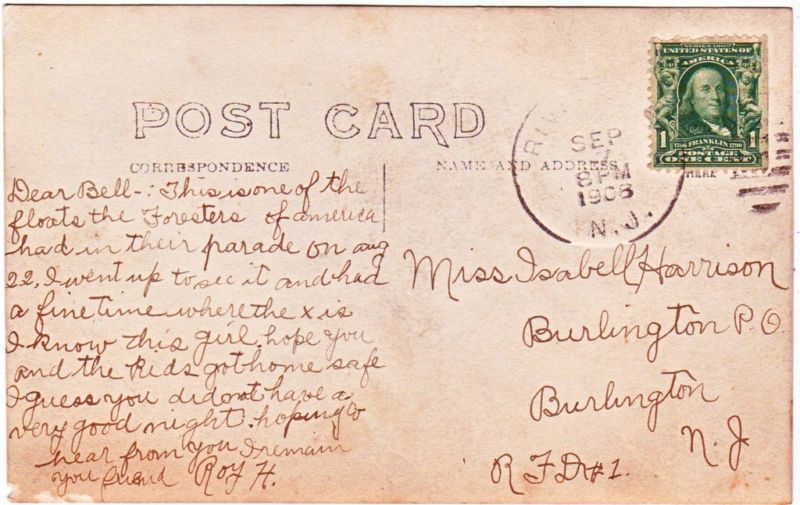 POST CARD
CORRESPONDENCE
NAME AND ADDRESS
HERE
SERIES 1902
UNITED STATES OF
AMERICA
1 1
1706 FRANKLIN 1790
POSTAGE
ONE CENT
SEP
8 PM
1908
N. J.
Dear Bell-: This is one of the
floats the Foresters of america
had in their parade on aug
22, I went up to see it and had
a fine time where the x is
I know this girl. hope you
and the kids got home safe
I guess you did not have a
very good night. hoping to
hear from you I remain
you friend Roy H.
Miss Isabell Harrison
Burlington P.O.
Burlington
N. J
R F D #1.